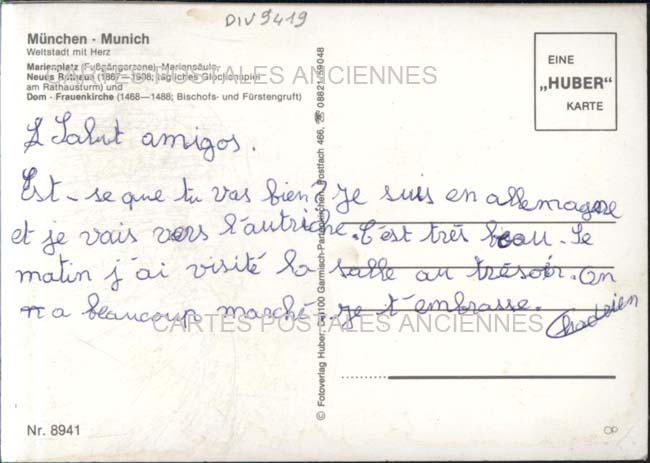 DIV9419
München - Munich
Weltstadt mit Herz
Marienplatz (Fußgängerzone), Mariensäule,
Neues Rathaus (1867—1908; tägliches Glockenspiel
am Rathausturm) und
Dom - Frauenkirche (1468—1488; Bischofs- und Fürstengruft)
EINE
„HUBER"
KARTE
CARTES POSTALES ANCIENNES
Salut amigos.
Est-se que tu vas bien? je suis en allemagne
et je vais vers l'autriche. C'est très beau. Le
matin j'ai visité la salle au trésoir. On
n a beaucoup marché. je t'embrasse.
CARTES POSTALES ANCIENNES
© Fotoverlag Huber, D-8100 Garmisch-Partenkirchen, Postfach 466, ☎ 08821/59048
Nr. 8941